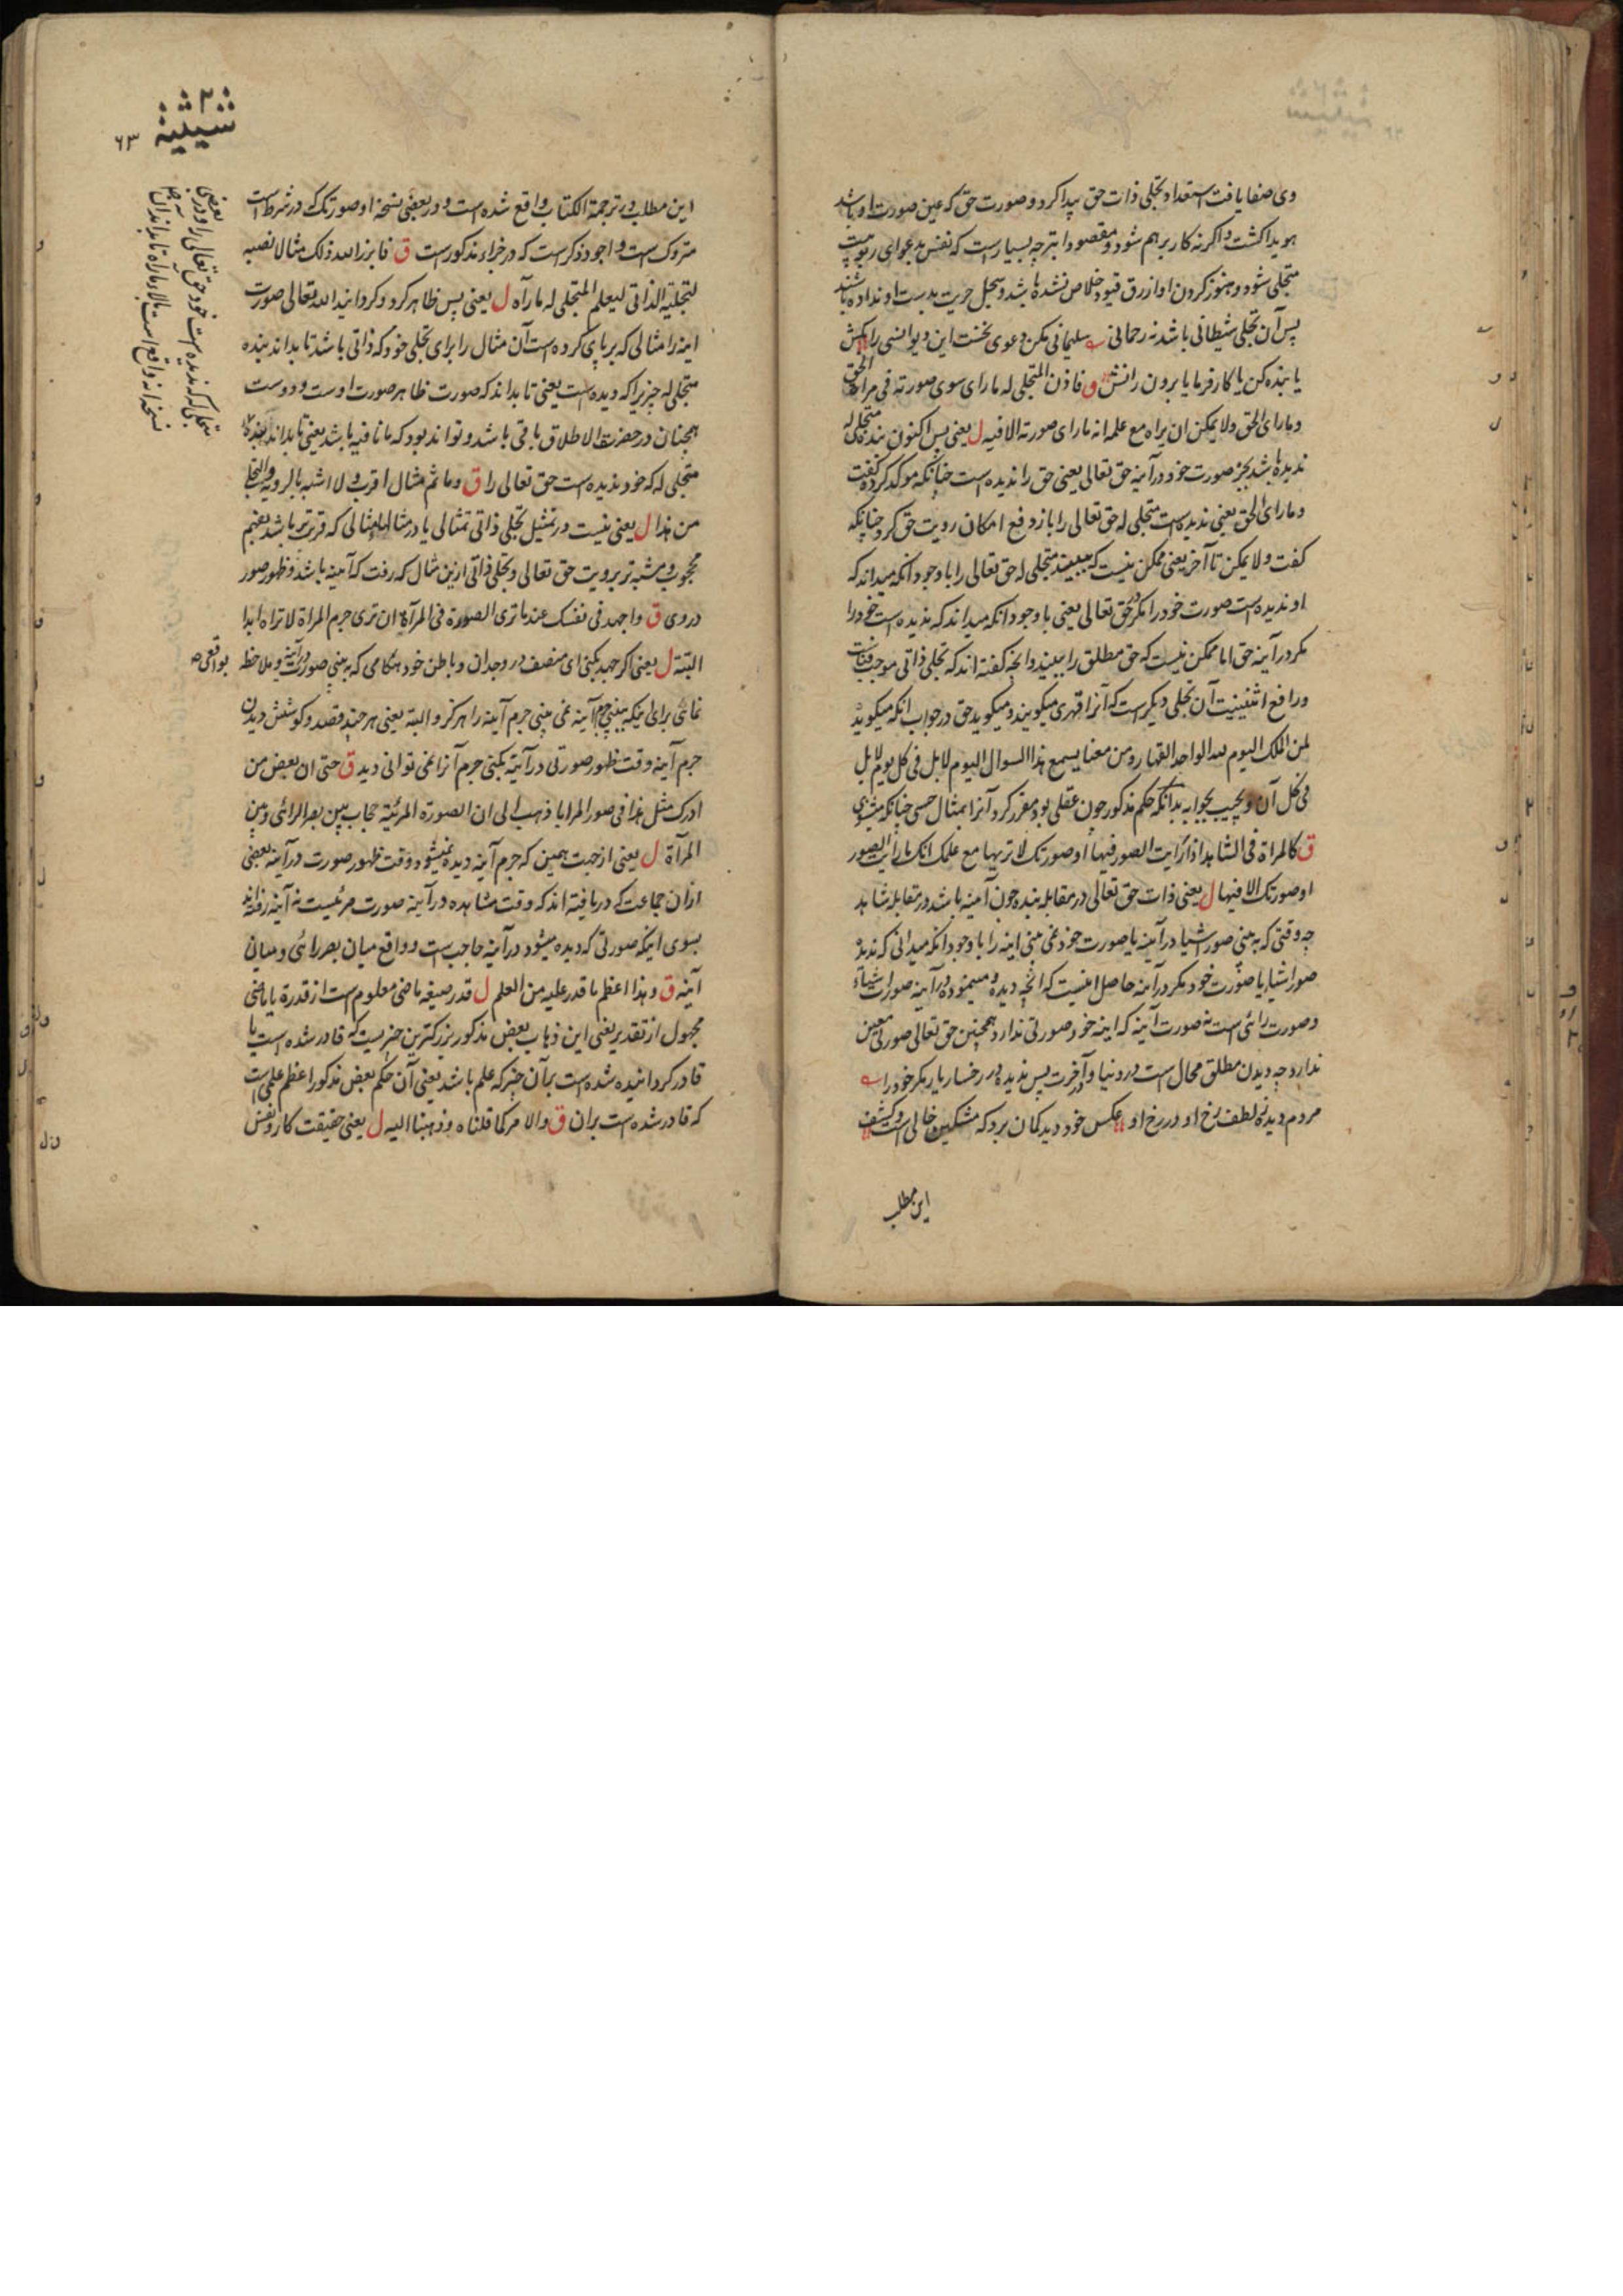 وی صفا یافت استعداد تجلی ذات حق پیدا کرد و صورت حق که عین صورت او باشد
هویدا کشت و اکر نه کار برهم شود و مقصود ابتر چه بسیار است که نفس بدعوای ربوبیت
متجلی شود و هنوز کردن او از رق قیود خلاص نشده باشد و سجل حریت بدست او نداده باشند
پس آن تجلی شیطانی باشد نه رحمانی سلیمانی مکن دعوی نخست این دیو انسی را بکش
یا بنده کن یا کار فرما یا برون رانش ق فاذن المتجلی له ما رای سوی صورته فی مراة الحق
و ما رای الحق ولا یمکن ان یراه مع علمه انه ما رای صورته الا فیه ل یعنی پس اکنون بنده متجلی له
ندیده باشد بجز صورت خود در آینه حق تعالی یعنی حق را ندیده است چنانکه موکد کرده کفت
و ما رای الحق یعنی ندیده است متجلی له حق تعالی را باز دفع امکان رویت حق کرد چنانکه
کفت ولا یمکن تا آخر یعنی ممکن نیست که ببیند متجلی له حق تعالی را با وجود انکه میداند که
او ندیده است صورت خود را مکر در حق تعالی یعنی با وجود انکه میداند که ندیده است خود را
مکر در آینه حق اما ممکن نیست که حق مطلق را ببیند و انچه کفته اند که تجلی ذاتی موجب فناست
و رافع اثنینیت آن تجلی دیکر است که آنرا قهری میکویند و میکوید حق در جواب انکه میکوید
لمن الملک الیوم لله الواحد القهار و من معنا یسمع هذا السوال الیوم لا بل فی کل یوم لا بل
فی کل آن و یجیب بجوابه بدانکه حکم مذکور چون عقلی بود مقرر کرد آنرا بمثال حسی چنانکه میشنوی
ق کالمراة فی الشاهد اذا رایت الصور فیها او صورتک لا تریها مع علمک انک ما رایت الصور
او صورتک الا فیها ل یعنی ذات حق تعالی در مقابله بنده چون آینه باشد در مقابله شاهد
چه وقتی که به بینی صور اشیا در آینه یا صورت خود نمی بینی اینه را با وجود انکه میدانی که ندیدهٔ
صور اشیا یا صورت خود مکر در آینه حاصل انیست که انچه دیده میشود در آینه صورت اشیاء
و صورت رائی است نه صورت آینه که اینه خود صورتی ندارد همچنین حق تعالی صورتی معین
ندارد چه دیدن مطلق محال است در دنیا و آخرت پس ندیده در رخسار یار مکر خود را
مردم دیده ز لطف رخ او در رخ او عکس خود دید کمان برد که مشکین خالی است و کشف
این مطلب
شیثیة
۶۳
این مطلب در ترجمة الکتاب واقع شده است و در بعضی نسخه او صورتک که در شرط است
متروک است و اجود ذکر است که در جزاء مذکور است ق فابرز الله ذلک مثالا نصبه
لتجلیه الذاتی لیعلم المتجلی له ما رآه ل یعنی پس ظاهر کرد و کردانید الله تعالی صورت
اینه را مثالی که بر پای کرده است آن مثال را برای تجلی خود که ذاتی باشد تا بداند بنده
متجلی له چیزیرا که دیده است یعنی تا بداند که صورت ظاهر صورت اوست و دوست
همچنان در حضرت الاطلاق باقی باشد و تواند بود که ما نافیه باشد یعنی تا بداند بنده
متجلی له که خود ندیده است حق تعالی را ق و ما ثم مثال اقرب ولا اشبه بالرویة والتجلی
من هذا ل یعنی نیست در تمثیل تجلی ذاتی تمثالی یا در مثالها مثالی که قریب تر باشد بفهم
محجوب و مشبه تر برویت حق تعالی و تجلی ذاتی ازین مثال که رفت که آینه باشد و ظهور صور
در وی ق واجهد فی نفسک عند ما تری الصورة فی المرآة ان تری جرم المراة لا تراه ابدا
البتة ل یعنی اکر جهد بکنی ای منصف در وجدان و باطن خود هنکامی که به بینی صورت در آینه و ملاحظه بواقعی
نمائی برای اینکه ببینی جرم آینه نمی بینی جرم آینه را هرکز و البته یعنی هر چند قصد و کوشش دیدن
جرم آینه وقت ظهور صورتی در آینه بکنی جرم آنرا نمی توانی دید ق حتی ان بعض من
ادرک مثل هذا فی صور المرایا ذهب الی ان الصورة المرئیة حجاب بین بصر الرائی و بین
المرآة ل یعنی از جهت همین که جرم آینه دیده نمیشود وقت ظهور صورت در آینه بعضی
ازان جماعت که دریافته اند که وقت مشاهده در آینه صورت مرئیست نه آینه رفته اند
بسوی اینکه صورتی که دیده میشود در آینه حاجب است و واقع میان بصر رائی و میان
آینه ق و هذا اعظم ما قدر علیه من العلم ل قدر صیغه ماضی معلوم است از قدرة یا ماضی
مجهول از تقدیر یعنی این ذهاب بعض مذکور بزرکترین چیزیست که قادر شده است یا
قادر کردانیده شده است بر آن چیز که علم باشد یعنی آن حکم بعض مذکور اعظم علمی است
که قادر شده است بران ق والامر کما قلناه و ذهبنا الیه ل یعنی حقیقت کار و نفس
متجلی له که ندیده است خود حق تعالی را و در بعضی
نسخه انه واقع است